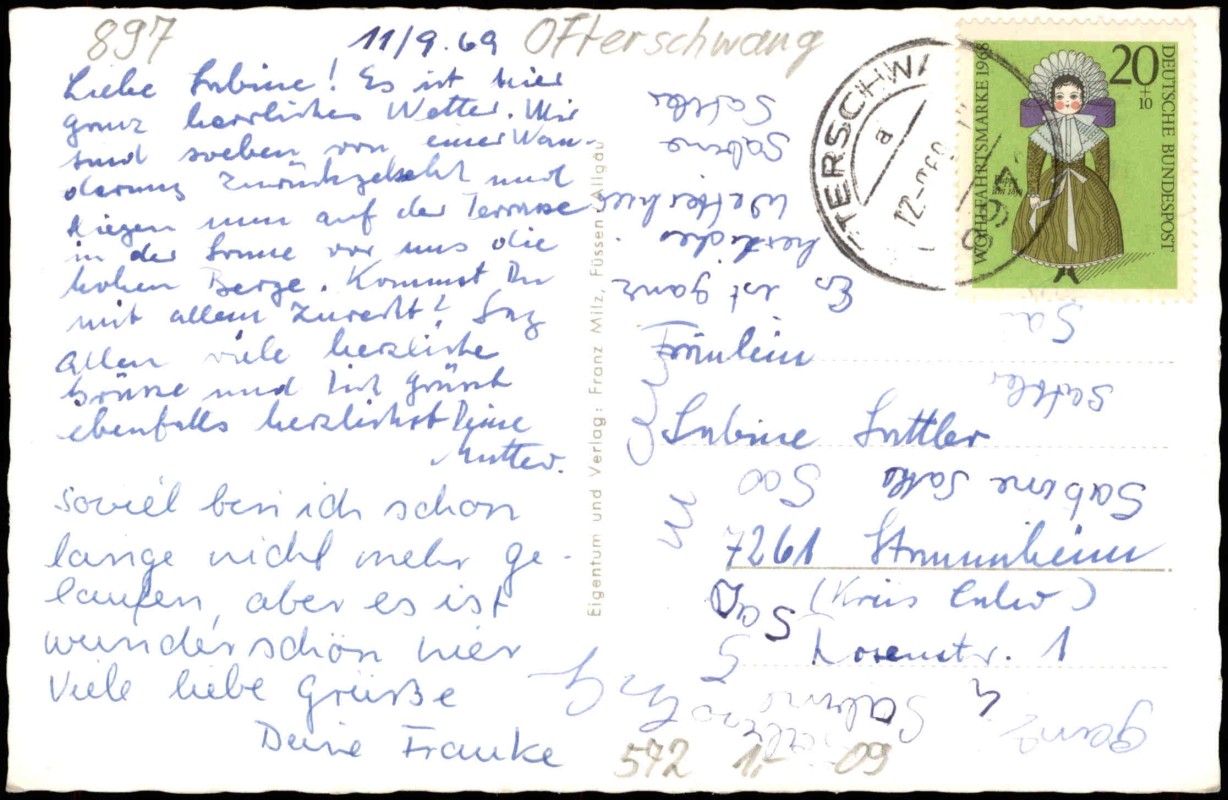 897
11/9.69 Ofterschwang
Liebe Sabine! Es ist hier
ganz herrliches Wetter. Wir
sind soeben von einer Wan-
derung zurückgekehrt und
liegen nun auf der Terrasse
in der Sonne vor uns die
hohen Berge. Kommst Du
mit allem zurecht? Sag
allen viele herzliche
Grüsse und Dich grüsst
ebenfalls herzlichst Deine
Mutter.
soviel bin ich schon
lange nicht mehr ge-
laufen, aber es ist
wunderschön hier
Viele liebe Grüße
Deine Frauke
Eigentum und Verlag: Franz Milz, Füssen-Allgäu
TERSCHWA
a
12.-9.69
WOHLFAHRTSMARKE 1968
20
+
10
DEUTSCHE BUNDESPOST
Sattler
Sabine
Wetter hier
herrliches
Es ist ganz
Sa
Fräulein
Sattler
Sabine Sattler
Sabine
7261 Stammheim
(Kreis Calw)
Rosenstr. 1
Sabine
ganz
572 1,- 09